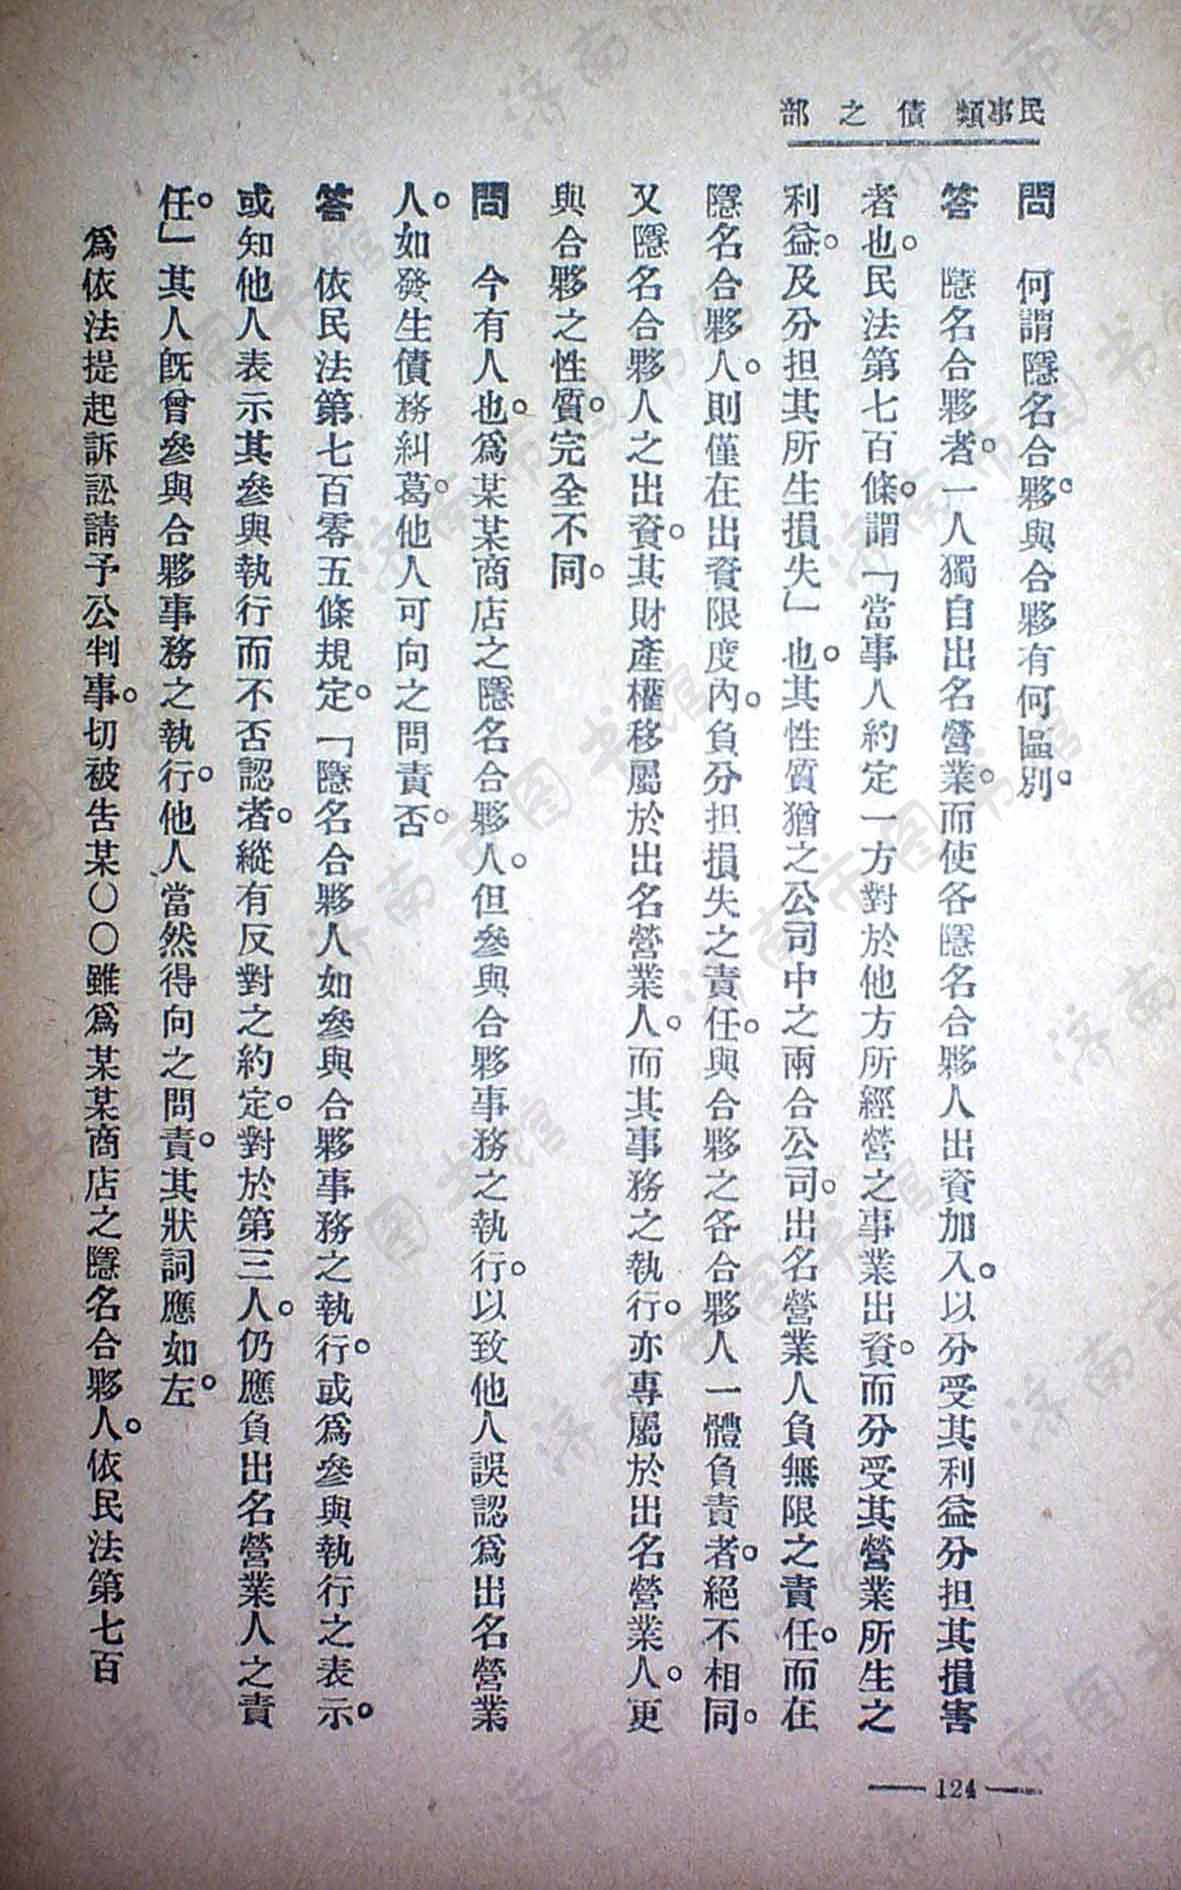 民事類債之部
問　何謂隱名合夥。與合夥有何區別。
答　隱名合夥者。一人獨自出名營業。而使各隱名合夥人出資加入。以分受其利益分担其損害
者也。民法第七百條。謂「當事人約定一方對於他方所經營之事業出資。而分受其營業所生之
利益。及分担其所生損失」也。其性質猶之公司中之兩合公司。出名營業人負無限之責任。而在
隱名合夥人。則僅在出資限度內。負分担損失之責任。與合夥之各合夥人一體負責者。絕不相同。
又隱名合夥人之出資。其財產權移屬於出名營業人。而其事務之執行。亦專屬於出名營業人。更
與合夥之性質。完全不同。
問　今有人也。為某某商店之隱名合夥人。但參與合夥事務之執行。以致他人誤認為出名營業
人。如發生債務糾葛。他人可向之問責否。
答　依民法第七百零五條規定。「隱名合夥人如參與合夥事務之執行。或為參與執行之表示。
或知他人表示其參與執行而不否認者。縱有反對之約定。對於第三人。仍應負出名營業人之責
任。」其人既曾參與合夥事務之執行。他人當然得向之問責。其狀詞應如左。
為依法提起訴訟請予公判事。切被告某〇〇雖為某某商店之隱名合夥人。依民法第七百
—124—
济南市图书馆